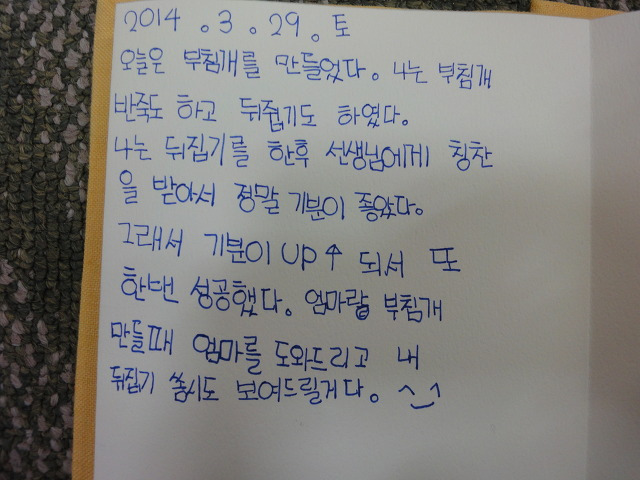 2014 . 3 . 29 . 토
오늘은 부침개를 만들었다. 나는 부침개
반죽도 하고 뒤줍기도 하였다.
나는 뒤집기를 한후 선생님에게 칭찬
을 받아서 정말 기분이 좋았다.
그래서 기분이 UP↑ 되서 또
한번 성공했다. 엄마랑 부침개
만들때 엄마를 도와드리고 내
뒤집기 쏨시도 보여드릴거다. ^_^